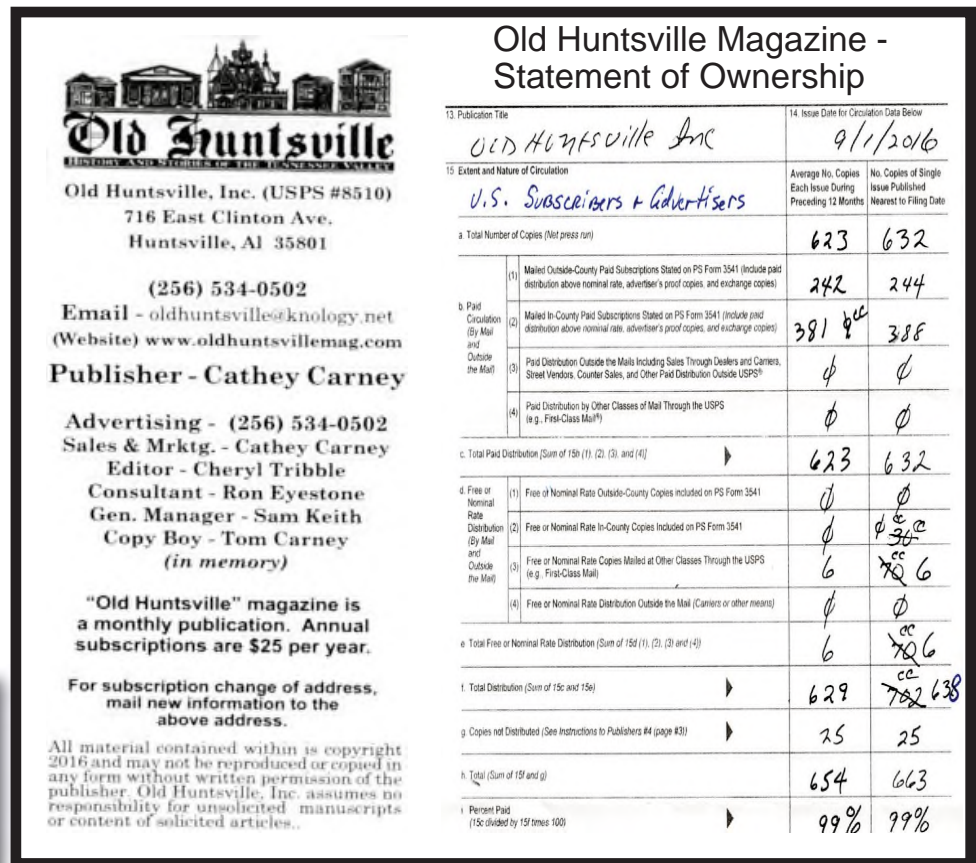 Old Huntsville
HISTORY AND STORIES OF THE TENNESSEE VALLEY
Old Huntsville, Inc. (USPS #8510)
716 East Clinton Ave.
Huntsville, Al 35801
(256) 534-0502
Email - oldhuntsville@knology.net
(Website) www.oldhuntsvillemag.com
Publisher - Cathey Carney
Advertising - (256) 534-0502
Sales & Mrktg. - Cathey Carney
Editor - Cheryl Tribble
Consultant - Ron Eyestone
Gen. Manager - Sam Keith
Copy Boy - Tom Carney
(in memory)
"Old Huntsville" magazine is
a monthly publication. Annual
subscriptions are $25 per year.
For subscription change of address,
mail new information to the
above address.
All material contained within is copyright
2016 and may not be reproduced or copied in
any form without written permission of the
publisher. Old Huntsville, Inc. assumes no
responsibility for unsolicited manuscripts
or content of solicited articles..
Old Huntsville Magazine -
Statement of Ownership
13. Publication Title
OLD HUNTSVILLE Inc
14. Issue Date for Circulation Data Below
9/1/2016
15 Extent and Nature of Circulation
U.S. SUBSCRIBERS + Advertisers
Average No. Copies
Each Issue During
Preceding 12 Months
No. Copies of Single
Issue Published
Nearest to Filing Date
a. Total Number of Copies (Net press run) 623 632
b. Paid
Circulation
(By Mail
and
Outside
the Mail)
(1) Mailed Outside-County Paid Subscriptions Stated on PS Form 3541 (Include paid
distribution above nominal rate, advertiser's proof copies, and exchange copies) 242 244
(2) Mailed In-County Paid Subscriptions Stated on PS Form 3541 (Include paid
distribution above nominal rate, advertiser's proof copies, and exchange copies) 381 cc 388
(3) Paid Distribution Outside the Mails Including Sales Through Dealers and Carriers,
Street Vendors, Counter Sales, and Other Paid Distribution Outside USPS® ∅ ∅
(4) Paid Distribution by Other Classes of Mail Through the USPS
(e.g., First-Class Mail®) ∅ ∅
c. Total Paid Distribution [Sum of 15b (1), (2), (3), and (4)] 623 632
d. Free or
Nominal
Rate
Distribution
(By Mail
and
Outside
the Mail)
(1) Free or Nominal Rate Outside-County Copies included on PS Form 3541 ∅ ∅
(2) Free or Nominal Rate In-County Copies Included on PS Form 3541 ∅ ∅ 30 cc
(3) Free or Nominal Rate Copies Mailed at Other Classes Through the USPS
(e.g., First-Class Mail) 6 70 cc 6
(4) Free or Nominal Rate Distribution Outside the Mail (Carriers or other means) ∅ ∅
e. Total Free or Nominal Rate Distribution (Sum of 15d (1), (2), (3) and (4)) 6 70 cc 6
f. Total Distribution (Sum of 15c and 15e) 629 702 cc 638
g. Copies not Distributed (See Instructions to Publishers #4 (page #3)) 25 25
h. Total (Sum of 15f and g) 654 663
i. Percent Paid
(15c divided by 15f times 100) 99% 99%